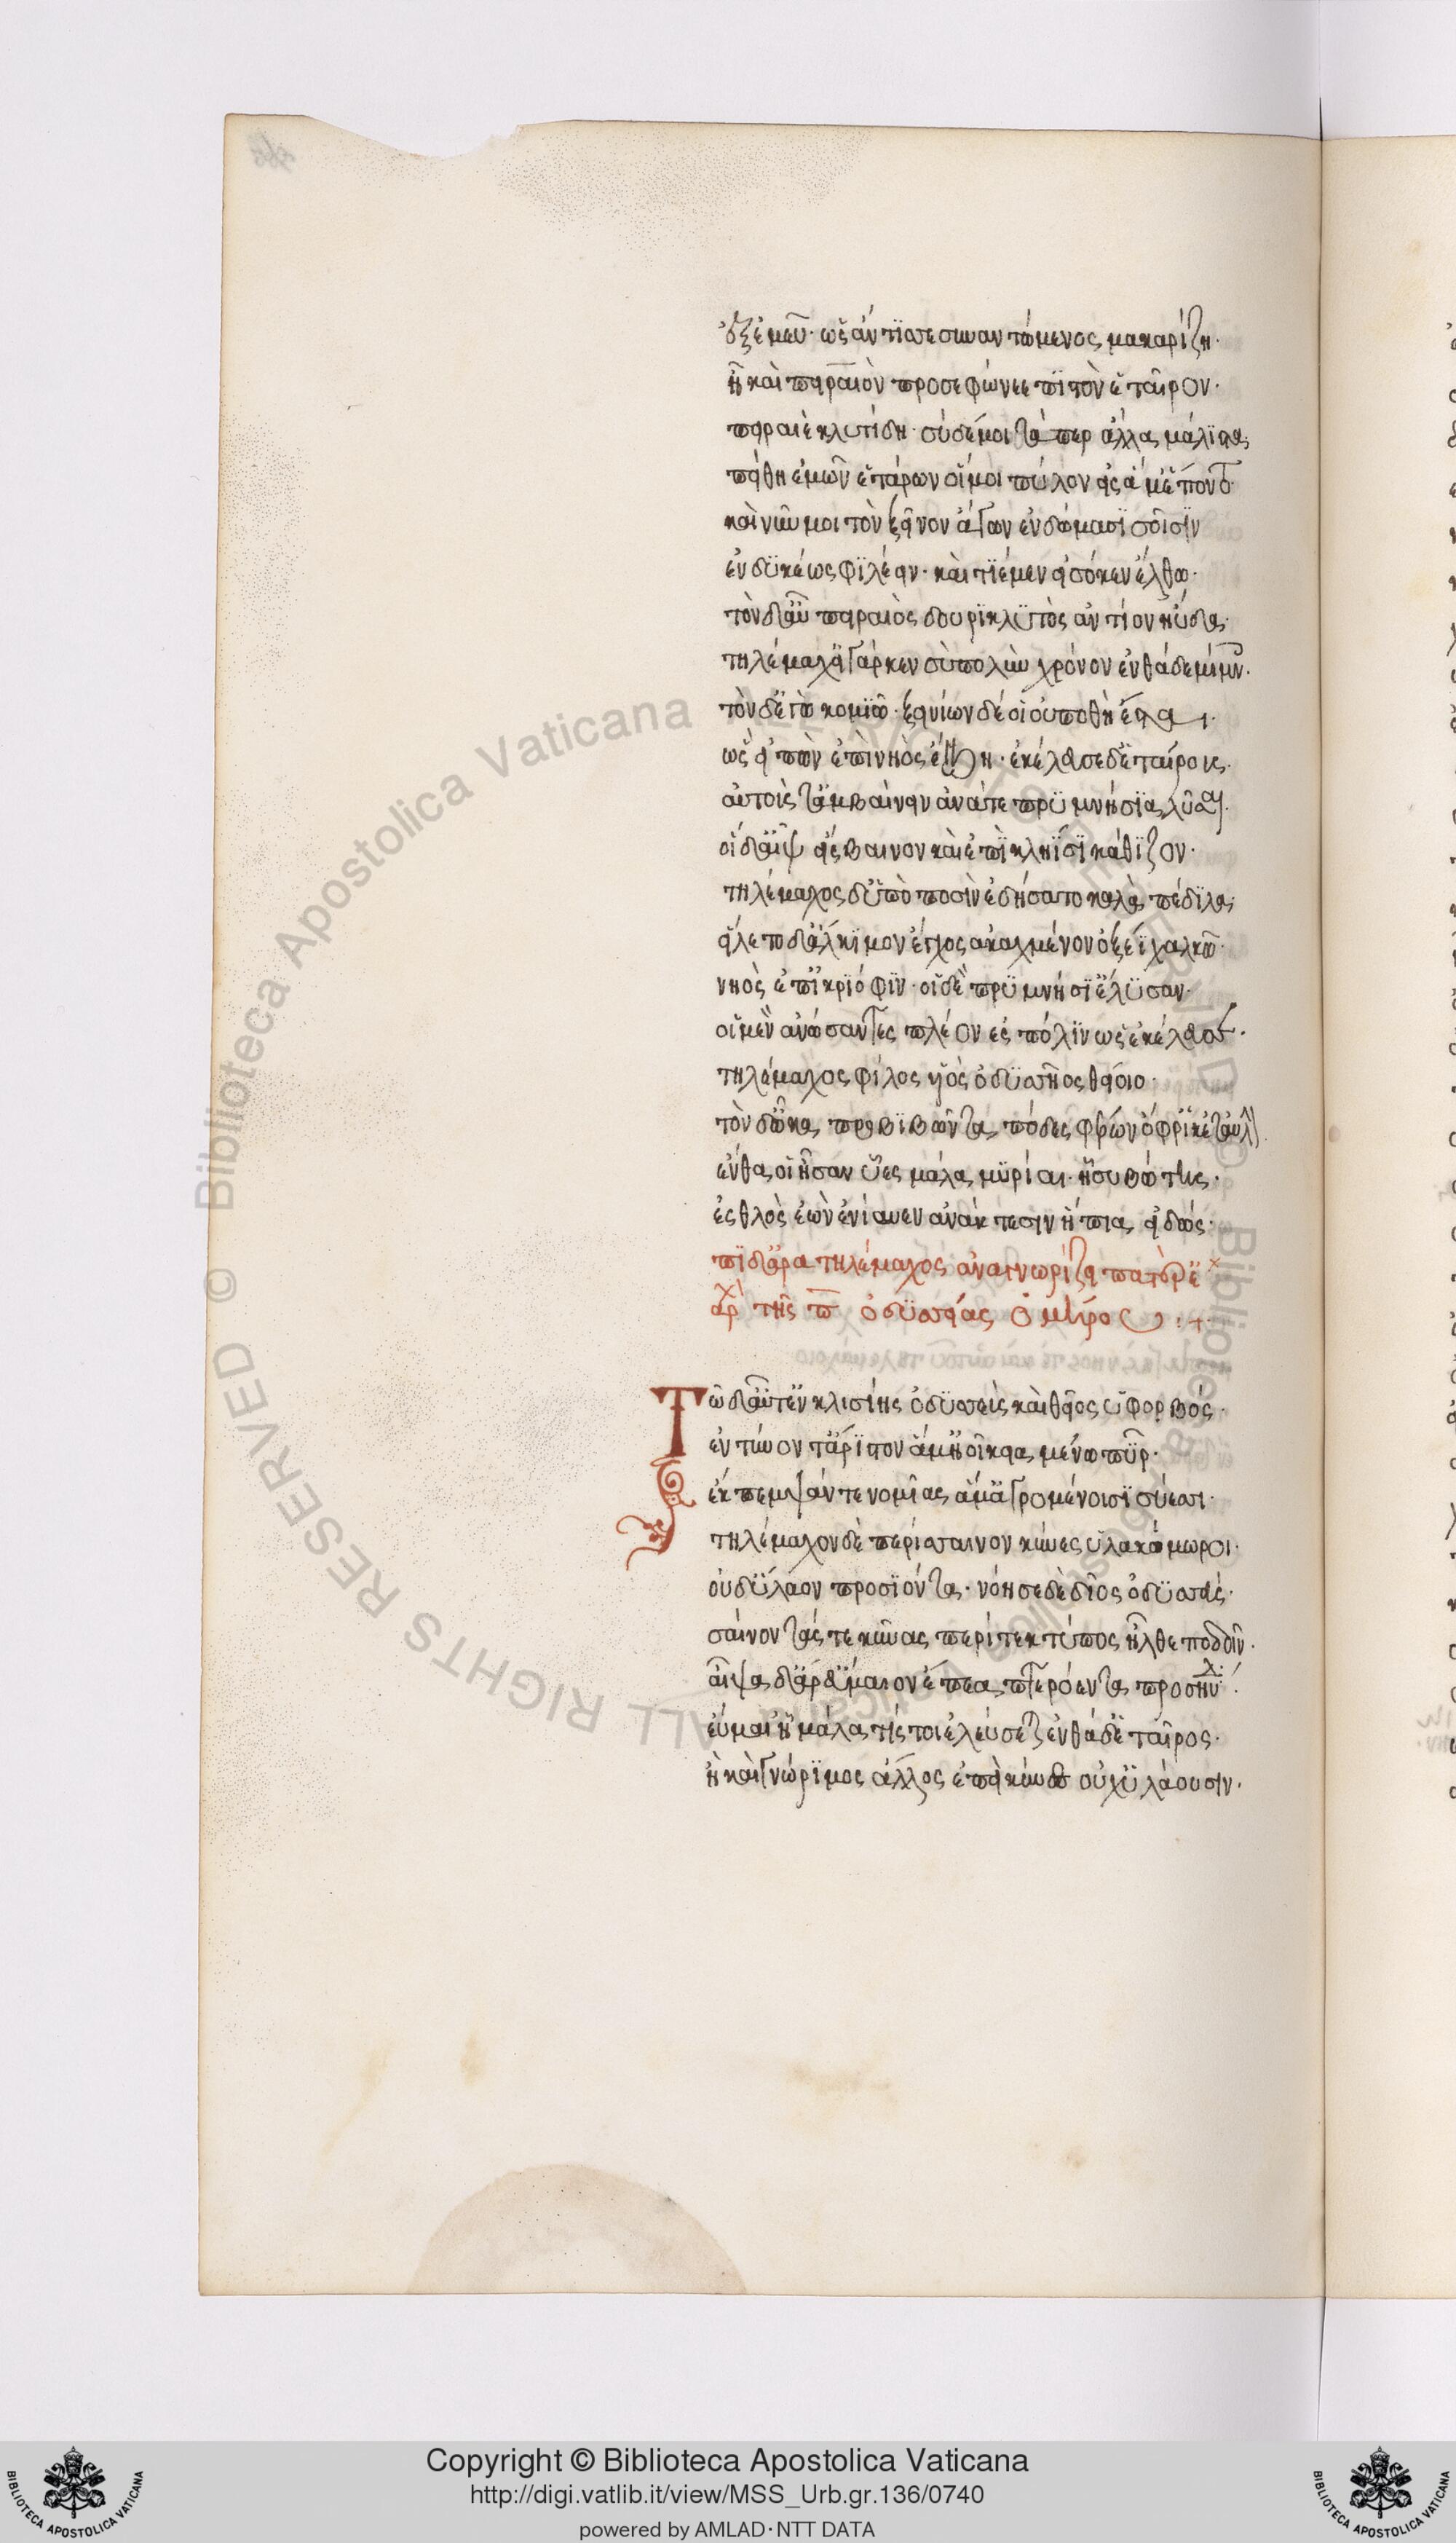 ἐξ ἐμεῦ· ὡς ἄν τίς σε συναντόμενος μακαρίζη·
ἦ καὶ πείραιον προσεφώνεε πιστὸν ἑταῖρον·
πείραιε κλυτίδη· σὺ δέ μοι τά περ ἄλλα μάλιστα
πείθη ἐμῶν ἑτάρων οἵ μοι πύλον εἰς ἅμ' ἕποντο·
καὶ νῦν μοι τὸν ξεῖνον ἄγων ἐν δώμασι σοῖσιν
ἐνδυκέως φιλέειν· καὶ τιέμεν εἰσόκεν ἔλθω·
τὸν δ' αὖ πείραιος δουρικλυτὸς ἀντίον ηὔδα·
τηλέμαχ' εἰ γάρ κεν σὺ πολὺν χρόνον ἐνθάδε μίμν.
τὸν δέ τ' ἐγὼ κομιῶ· ξεινίων δέ οἱ οὐ ποθὴ ἔσται·
ὣς εἰπὼν ἐπὶ νηὸς ἔβη· ἐκέλευσε δ' ἑταίροις
αὐτούς τ' ἀμβαίνειν ἀνά τε πρυμνήσια λῦσαι·
οἱ δ' αἶψ' εἴσβαινον καὶ ἐπὶ κληῗσι κάθιζον·
τηλέμαχος δ' ὑπὸ ποσὶν ἐδήσατο καλὰ πέδιλα
εἵλετο δ' ἄλκιμον ἔγχος ἀκαχμένον ὀξέϊ χαλκῶ·
νηὸς ἐπ' ἰκριόφιν· οἱ δὲ πρυμνήσι' ἔλυσαν·
οἱ μὲν ἀνώσαντες πλέον ἐς πόλιν ὡς ἐκέλευσε·
τηλέμαχος φίλος υἱὸς ὀδυσσῆος θείοιο·
τὸν δ' ὦκα προβιβῶντα πόδες φέρον ὄφρ' ἵκετ' αὐλ)
ἔνθα οἱ ἦσαν ὕες μάλα μυρίαι· ᾗσι συβώτης·
ἐσθλὸς ἐὼν ἐνίαυεν ἀνάκτεσιν ἤπια εἰδώς·
πῖ δ' ἄρα τηλέμαχος ἀναγνωρίζει πατέρ' ἑ
ἀρχὴ τῆς π ὀδυσσείας ὁμήρου :+
Τῶ δ' αὖτ' ἐν κλισίης ὀδυσεὺς καὶ θεῖος ὑφορβός·
ἐντύνοντ' ἄριστον ἅμ' ἠοῖ κειαμένω πῦρ·
ἔκπεμψάν τε νομῆας ἅμ' ἀγρομένοισι σύεσσι·
τηλέμαχον δὲ περίσσαινον κύνες ὑλακόμωροι·
οὐδ' ὕλαον προσιόντα· νόησε δὲ δῖος ὀδυσσεὺς·
σαίνοντάς τε κύνας περί τε κτύπος ἦλθε ποδοῖιν·
αἶψα δ' ἄρ' εὔμαιον ἔπεα πτερόεντα προσηύδ·
εὔμαι' ἦ μάλα τίς τοι ἐλεύσεται ἐνθάδ' ἑταῖρος·
ἢ καὶ γνώριμος ἄλλος ἐπεὶ κύνες οὐχ ὑλάουσιν·
Copyright © Biblioteca Apostolica Vaticana
http://digi.vatlib.it/view/MSS_Urb.gr.136/0740
powered by AMLAD·NTT DATA